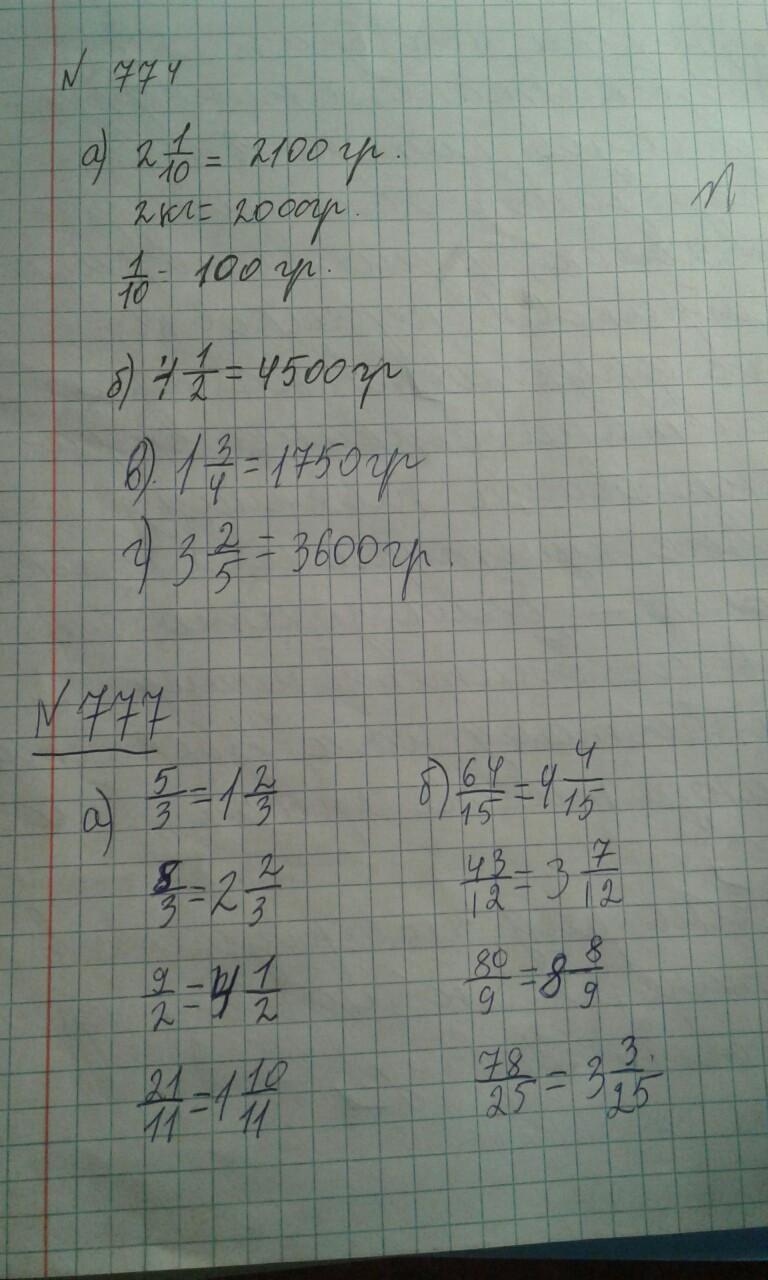 № 774
а) 2 1/10 = 2100 гр.
2 кг = 2000 гр.
1/10 - 100 гр.
б) 4 1/2 = 4500 гр
в) 1 3/4 = 1750 гр
г) 3 2/5 = 3600 гр.
№ 777
а) 5/3 = 1 2/3
8/3 = 2 2/3
9/2 = 4 1/2
21/11 = 1 10/11
б) 64/15 = 4 4/15
43/12 = 3 7/12
80/9 = 8 8/9
78/25 = 3 3/25